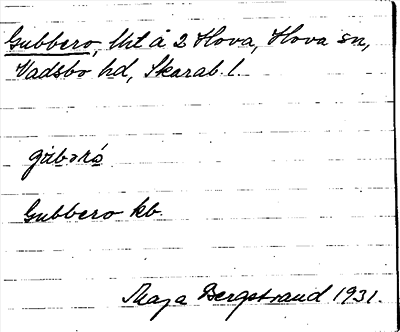 Gubbero, Uxt å 2 Hova, Hova sn,
Vadsbo hd, Skarab. l.
gúbərò
Gubbero kb.
Maja Bergstrand 1931.